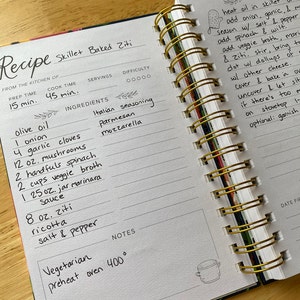 Recipe Skillet Baked Ziti
FROM THE KITCHEN OF
PREP TIME COOK TIME SERVINGS DIFFICULTY
15 min. 45 min.
INGREDIENTS
olive oil Italian seasoning
1 onion parmesan
4 garlic cloves mozzarella
12 oz. mushrooms
2 handfuls spinach
2 cups veggie broth
1 25 oz. jar marinara
sauce
8 oz. ziti
ricotta
salt & pepper
NOTES
Vegetarian
preheat oven 400°
heat oil in
add onion, garlic, &
season w/ salt & pepper
add spinach &
add veggie broth,
& ziti, stir, bring
w/ other cheese
cover & bake
uncover & bake
if there's too
on stovetop
optional: garnish
DATE